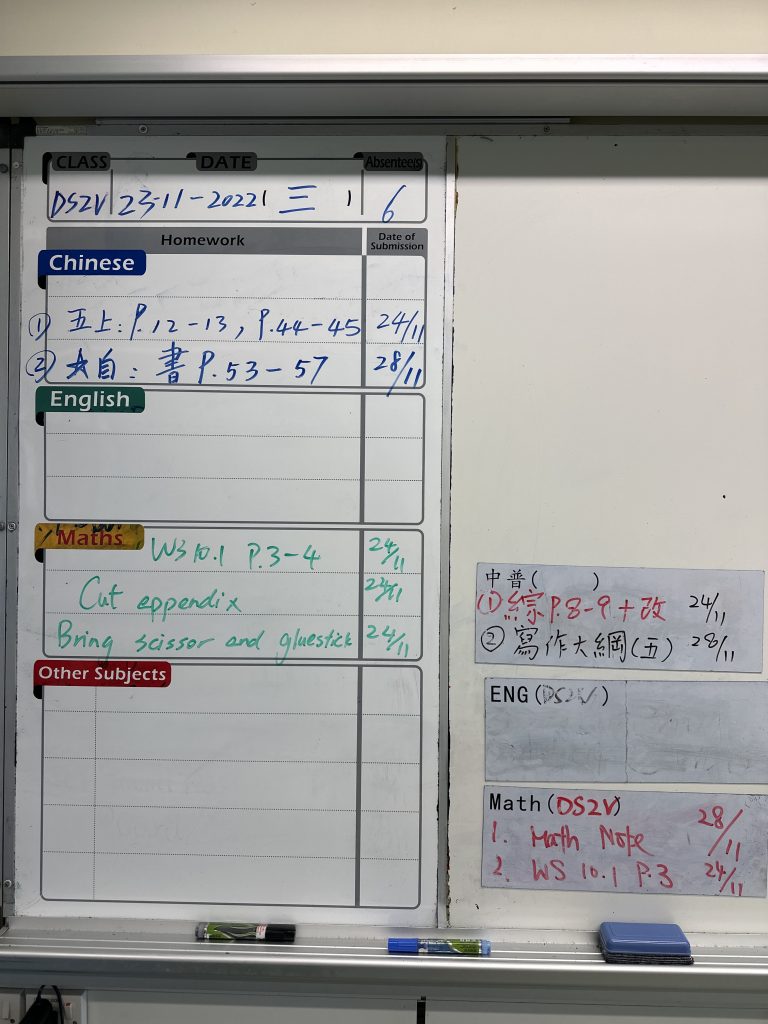 CLASS DATE Absentee(s)
DS2V 23-11-2022 ( 三 ) 6
Homework Date of Submission
Chinese
① 五上: P.12-13, P.44-45 24/11
② ★自: 書 P.53-57 28/11
English
Maths WS 10.1 P.3-4 24/11
Cut appendix 24/11
Bring scissor and gluestick 24/11
Other Subjects
中普( )
① 綜 P.8-9+改 24/11
② 寫作大綱(五) 28/11
ENG(DS2V)
Math(DS2V)
1. Math Nope 28/11
2. WS 10.1 P.3 24/11